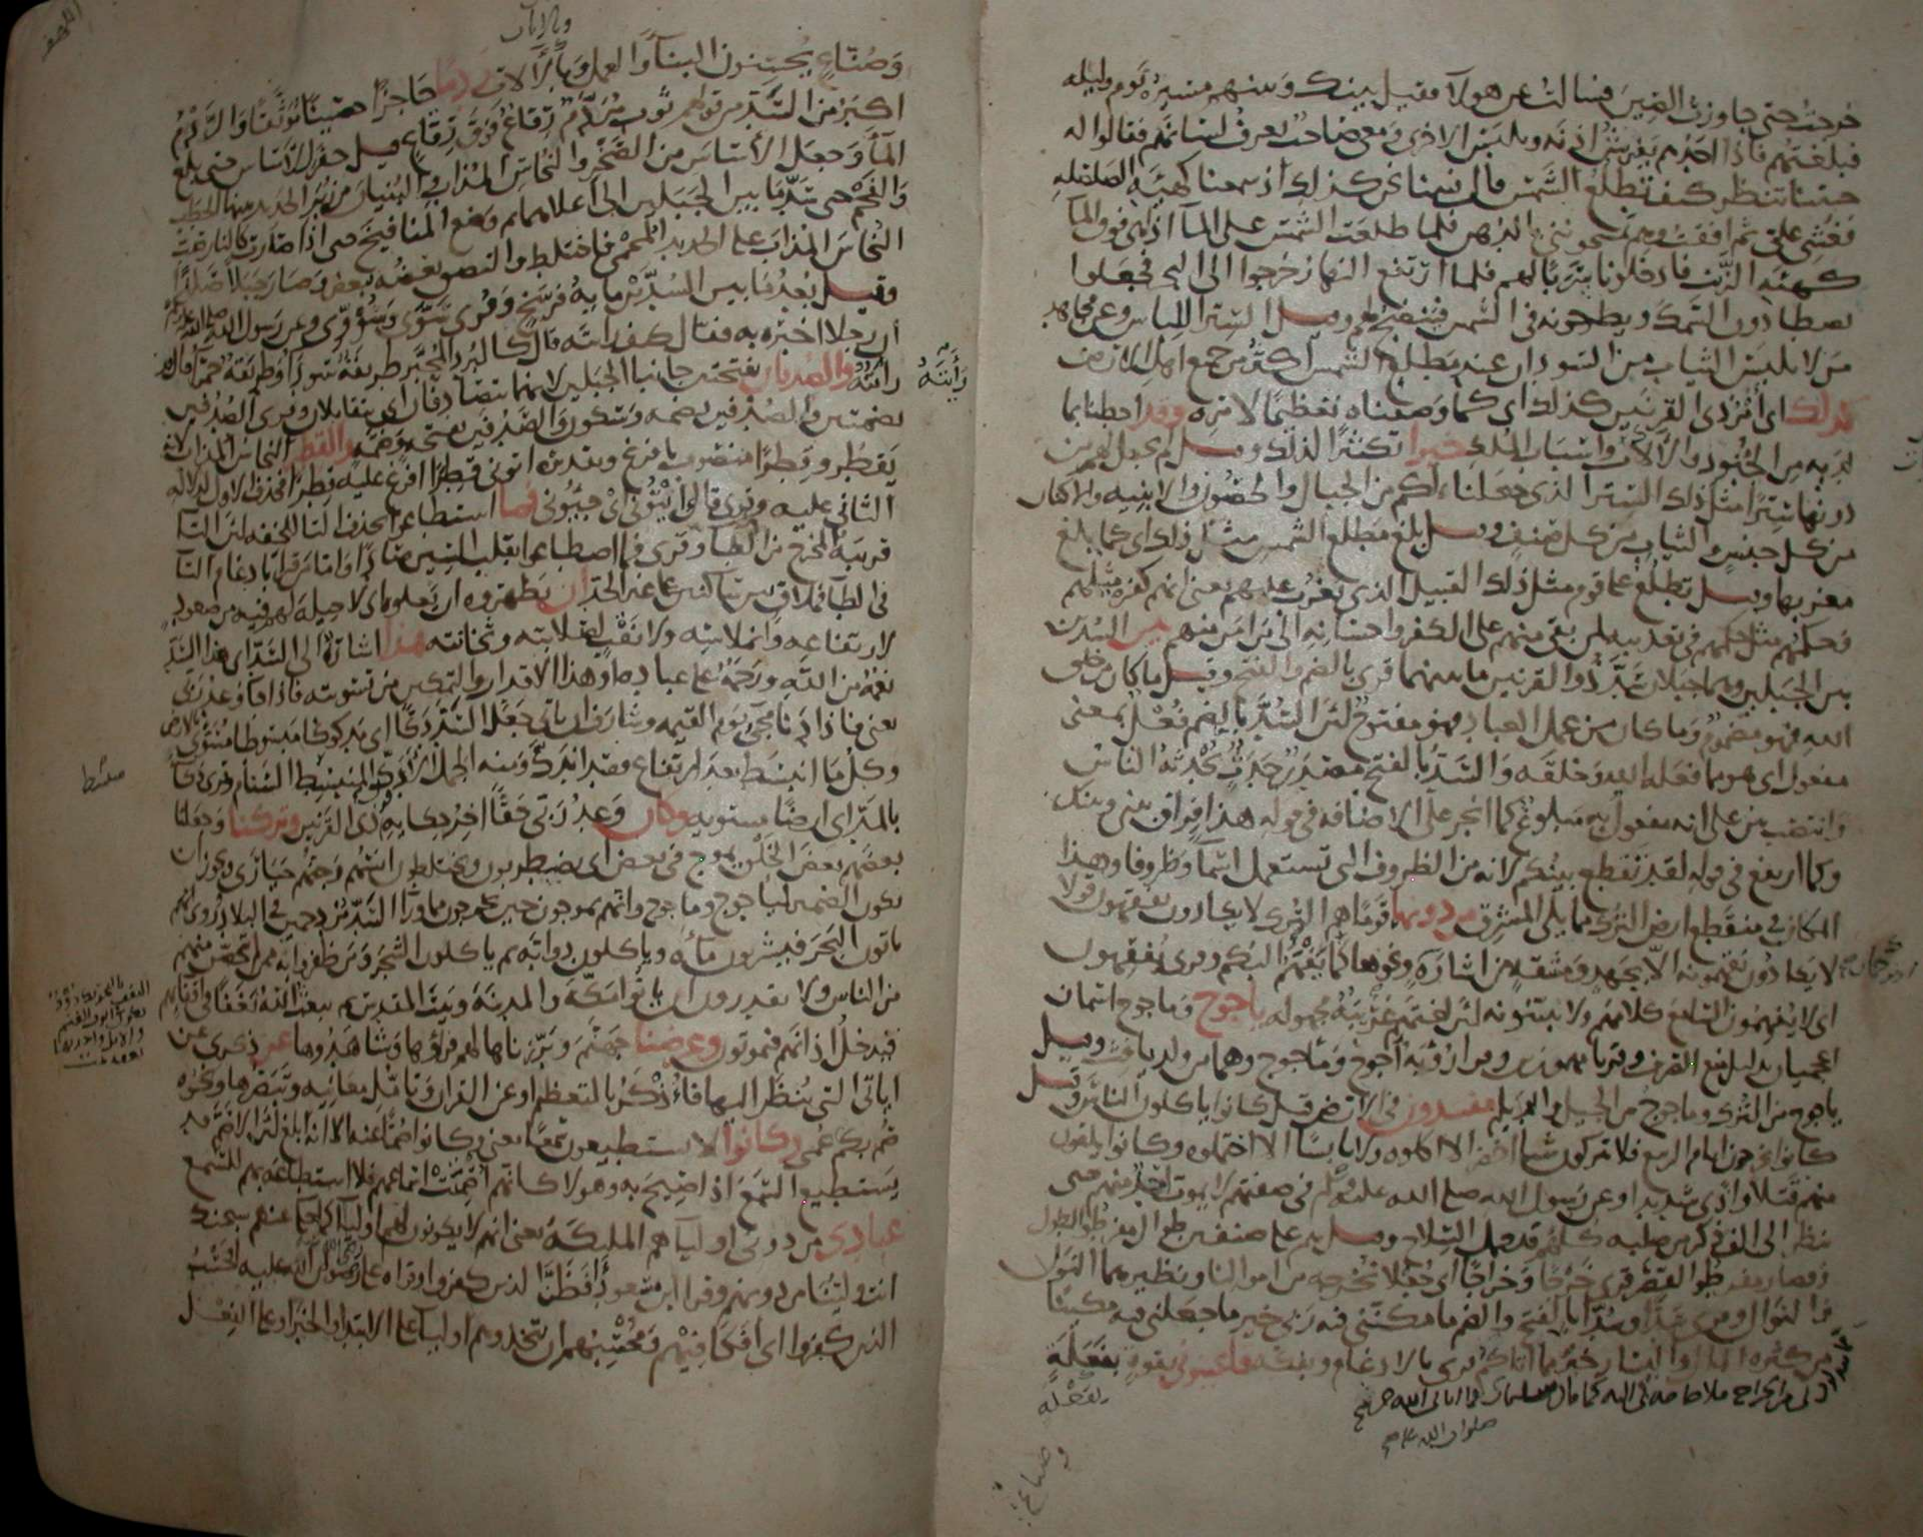 خرجت حتى جاوزت الصين فسالت عن هولا فقيل بينك وبينهم مسيرة يوم وليله
فبلغتهم فاذا احدهم يفرش اذنه ويلبس الاخرى ومعي صاحب يعرف لسانهم فقالوا له
جئتنا تنظر كيف تطلع الشمس قال فبينا نحن كذلك اذ سمعنا كهيئه الصلصله
فغشي علي ثم افقت وهم يمسحونني بالدهن فلما طلعت الشمس على الما اذا هي فوق الما
كهيئه الزيت فادخلونا سربا لهم فلما ارتفع النهار خرجوا الى البحر فجعلوا
يصطادون السمك ويطرحونه في الشمس فينضج لهم وقيل الستر اللباس وعن مجاهد
من لا يلبس الثياب من السودان عند مطلع الشمس اكثر من جميع اهل الارض
كذلك اي امر ذي القرنين كذلك اي كما وصفناه تعظيما لامره وقد احطنا بما
لديه من الجنود والالات واسباب الملك خبرا تكثيرا لذلك وقيل لم نجعل لهم من
دونها سترا مثل ذلك الستر الذي جعلنا لكم من الجبال والحصون والابنيه والاكنان
من كل جنس والثياب من كل صنف وقيل بلغ مطلع الشمس مثل ذلك اي كما بلغ
مغربها وقيل تطلع على قوم مثل ذلك القبيل الذي تغرب عليهم يعني انهم كفره مثلهم
وحكمهم مثل حكمهم في تعذيبه لمن بقي منهم على الكفر واحسانه الى من امن منهم بين السدين
بين الجبلين وهما جبلان سد ذو القرنين ما بينهما قري بالضم والفتح وقيل ما كان من خلق
الله فهو مضموم وما كان من عمل العباد فهو مفتوح لان السد بالضم فعل بمعنى
مفعول اي هو مما فعله الله وخلقه والسد بالفتح مصدر حدث يحدثه الناس
وانتصب بين على انه مفعول به مبلوغ كما انجر على الاضافه في قوله هذا فراق بيني وبينك
وكما ارتفع في قوله لقد تقطع بينكم لانه من الظروف التي تستعمل اسما وظروفا وهذا
المكان في منقطع ارض الترك مما يلي المشرق من دونهما قوما هم الترك لا يكادون يفقهون قولا
لا يكادون يفهمونه الا بجهد ومشقه من اشارة ونحوها كما يفهم البكم وقرى يفقهون
اي لا يفهمون السامع كلامهم ولا يبينونه لان لغتهم غريبة مجهوله ياجوج وماجوج اسمان
اعجميان بدليل منع الصرف وقريا مهموزين وقرا رؤبه آجوج وماجوج وهما من ولد يافث وقيل
ياجوج من الترك وماجوج من الجيل والديلم مفسدون في الارض قيل كانوا ياكلون الناس وقيل
كانوا يخرجون ايام الربيع فلا يتركون شيا اخضر الا اكلوه ولا يابسا الا احتملوه وكانوا يلقون
منهم قتلا واذى شديدا وعن رسول الله صلى الله عليه وسلم في صفتهم لا يموت احد منهم حتى
ينظر الى الف ذكر من صلبه كلهم قد حمل السلاح وقيل هم على صنفين طوال مفرطوا الطول
وقصار مفرطوا القصر قري خرجا وخراجا اي جعلا نخرجه من اموالنا ونظيرهما النول
والنوال وقرى سدا وسدا بالفتح والضم ما مكنني فيه ربي خير ما جعلني فيه مكينا
من كثره المال واليسار خير مما اتاكم قرى بالادغام وبفكه فاعينوني بقوة بفعلة
وصناع يحسنون البنا والعمل وبالالات ردما حاجزا حصينا موثقا والردم
اكبر من السد من قولهم ثوب مردم رقاع فوق رقاع وقيل حفر الاساس حتى بلغ
الما وجعل الاساس من الصخر والنحاس المذاب والبنيان من زبر الحديد بينها الحطب
والفحم حتى سد ما بين الجبلين الى اعلاهما ثم وضع المنافيخ حتى اذا صارت كالنار صب
النحاس المذاب على الحديد المحمى فاختلط والتصق بعضه ببعض وصار جبلا صلدا
وقيل بعد ما بين السدين مايه فرسخ وقرى سوى وسووي وعن رسول الله صلى الله عليه
ان رجلا اخبره به فقال كيف رايته قال كالبرد المحبر طريقة سودا وطريقة حمرا قال قد
رايته والصدفان بفتحتين جانبا الجبلين لانهما يتصادفان اي يتقابلان وقرى الصدفين
بضمتين والصدفين بضمه وسكون والصدفين بفتحه وضمه والقطر النحاس المذاب لانه
يقطر وقطرا منصوب بافرغ وتقديره اتوني قطرا افرغ عليه قطرا فحذف الاول لدلاله
الثاني عليه وقرى قال ائتوني اي جيئوني فما اسطاعوا بحذف التا للخفه لان التا
قريبة المخرج من الطا وقرى فما اصطاعوا بقلب السين صادا واما من قرا بادغام التا
في الطا فملاق بين ساكنين على غير الحد ان يظهروه ان يعلوه اي لا حيلة لهم فيه من صعود
لارتفاعه وانملاسه ولا نقب لصلابته وثخانته هذا اشارة الى السد اي هذا السد
نعمة من الله ورحمة على عباده او هذا الاقدار والتمكين من تسويته فاذا جا وعد ربي
يعني فاذا دنا مجي يوم القيمه وشارف ان ياتي جعل السد دكا اي مدكوكا مبسوطا مسوى بالارض
وكل ما انبسط بعد ارتفاع فقد اندك ومنه الجمل الادك المنبسط السنام وقرى دكا
بالمد اي ارضا مستويه وكان وعد ربي حقا اخر حكايه ذي القرنين وتركنا وجعلنا
بعضهم بعض الخلق يموج في بعض اي يضطربون ويختلطون انسهم وجنهم حيارى ويجوز ان
يكون الضمير لياجوج وماجوج وانهم يموجون حين يخرجون مما ورا السد مزدحمين في البلاد روى انهم
ياتون البحر فيشربون ماءه وياكلون دوابه ثم ياكلون الشجر ومن ظفروا به ممن لم يتحصن منهم
من الناس ولا يقدرون ان ياتوا مكه والمدينة وبيت المقدس ثم يبعث الله نغفا في اقفايهم
فيدخل اذانهم فيموتون وعرضنا جهنم وبرزناها لهم فراوها وشاهدوها عن ذكري عن
اياتي التي ينظر اليها فاذكر بالتعظيم او عن القران وتامل معانيه وتبصرها ونحوه
صم بكم عمي وكانوا لا يستطيعون سمعا يعني وكانوا صما عنه الا انه ابلغ لان الاصم قد
يستطيع السمع اذا صيح به وهولا كانهم اصميت اسماعهم فلا استطاعه بهم للسمع
عبادي من دوني اوليا هم المليكة يعني انهم لا يكونون لهم اوليا كما حكى عنهم سبحنك
انت ولينا من دونهم وقرا ابن مسعود افظن الذين كفروا وقراه علي رضوان الله عليه افحسب
الذين كفروا اي افكافيهم ومحسبهم ان يتخذوهم اوليا على الابتدا والخبر او على الفعل
رايته